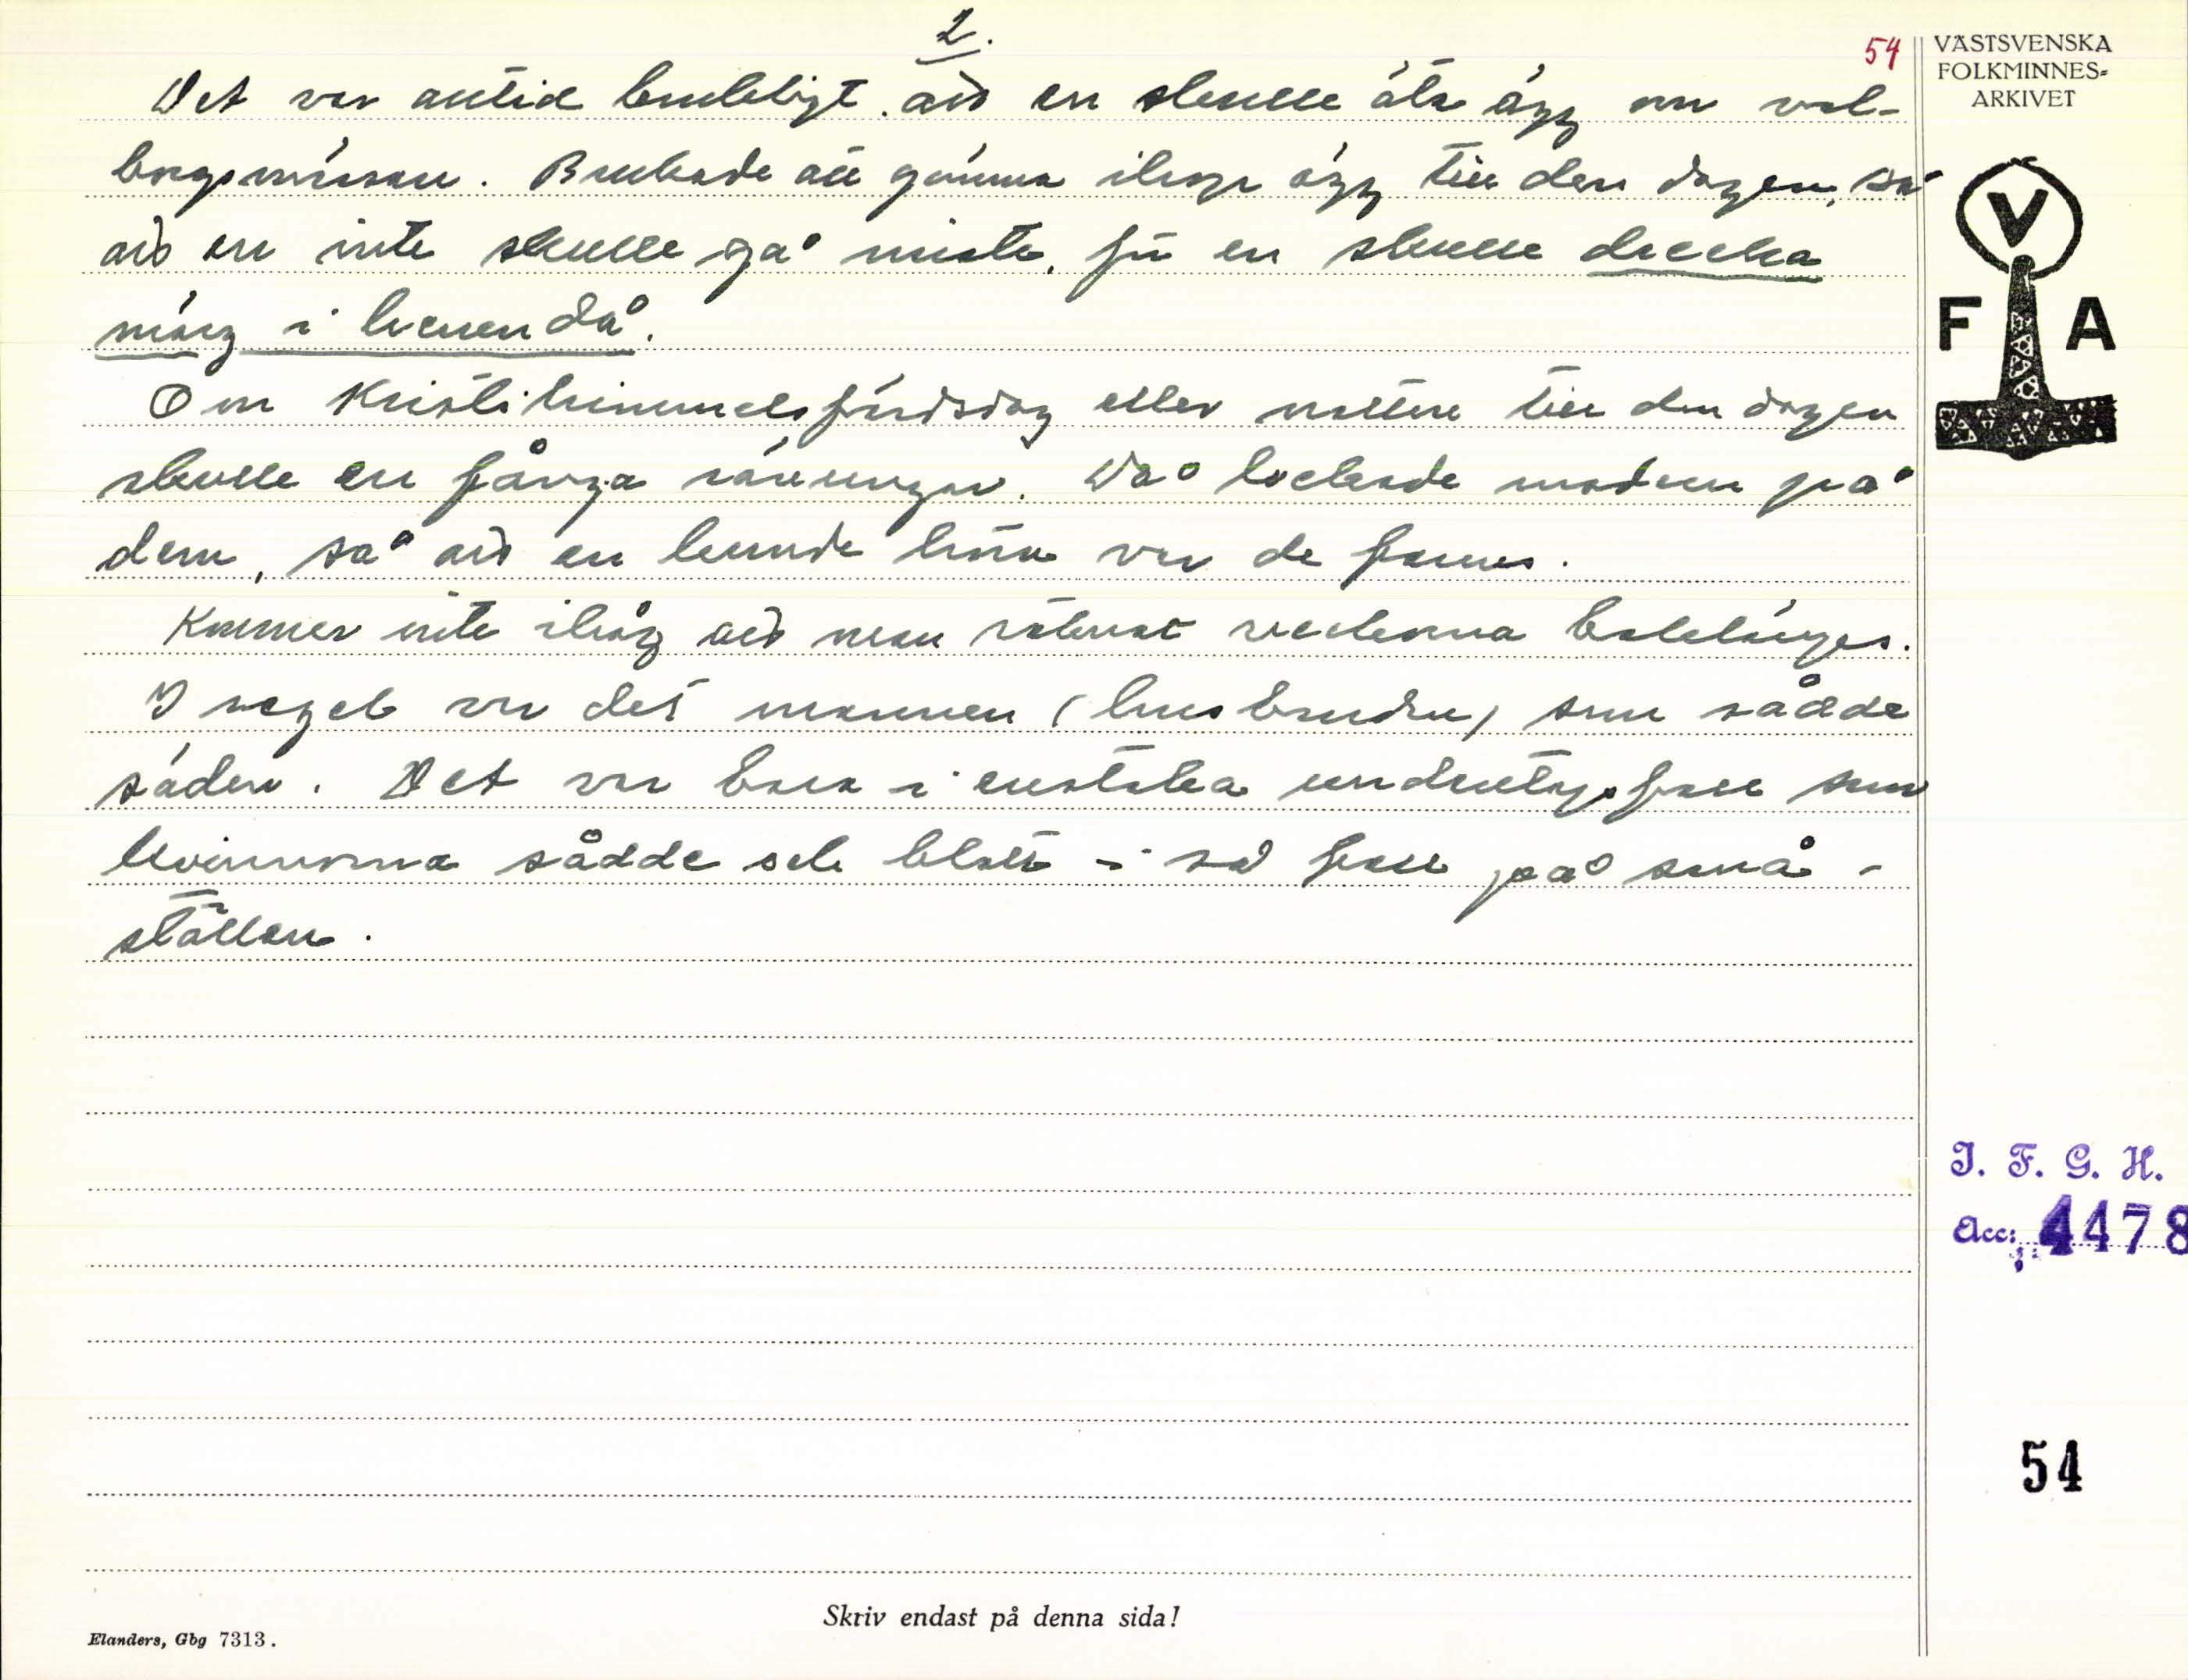 2.
54
VÄSTSVENSKA
FOLKMINNES-
ARKIVET
Det var alltid brukligt att en skulle äta ägg om val-
borgsmässan. Brukade att gömma ihop ägg till den dagen, så
att en inte skulle gå miste, för en skulle dricka
märg i benen då.
V
F A
Om Kristi himmelsfärdsdag eller natten till den dagen
skulle en fånga rävungar. Då lockade modern på
dem, så att en kunde höra var de fanns.
Kommer inte ihåg att man räknat veckorna baklänges.
I regel var det mannen (husbonden) som sådde
säden. Det var bara i enstaka undantagsfall som
kvinnorna sådde och blott i så fall på små-
ställen.
I. F. G. H.
Acc: 4478
54
Skriv endast på denna sida!
Elanders, Gbg 7313.